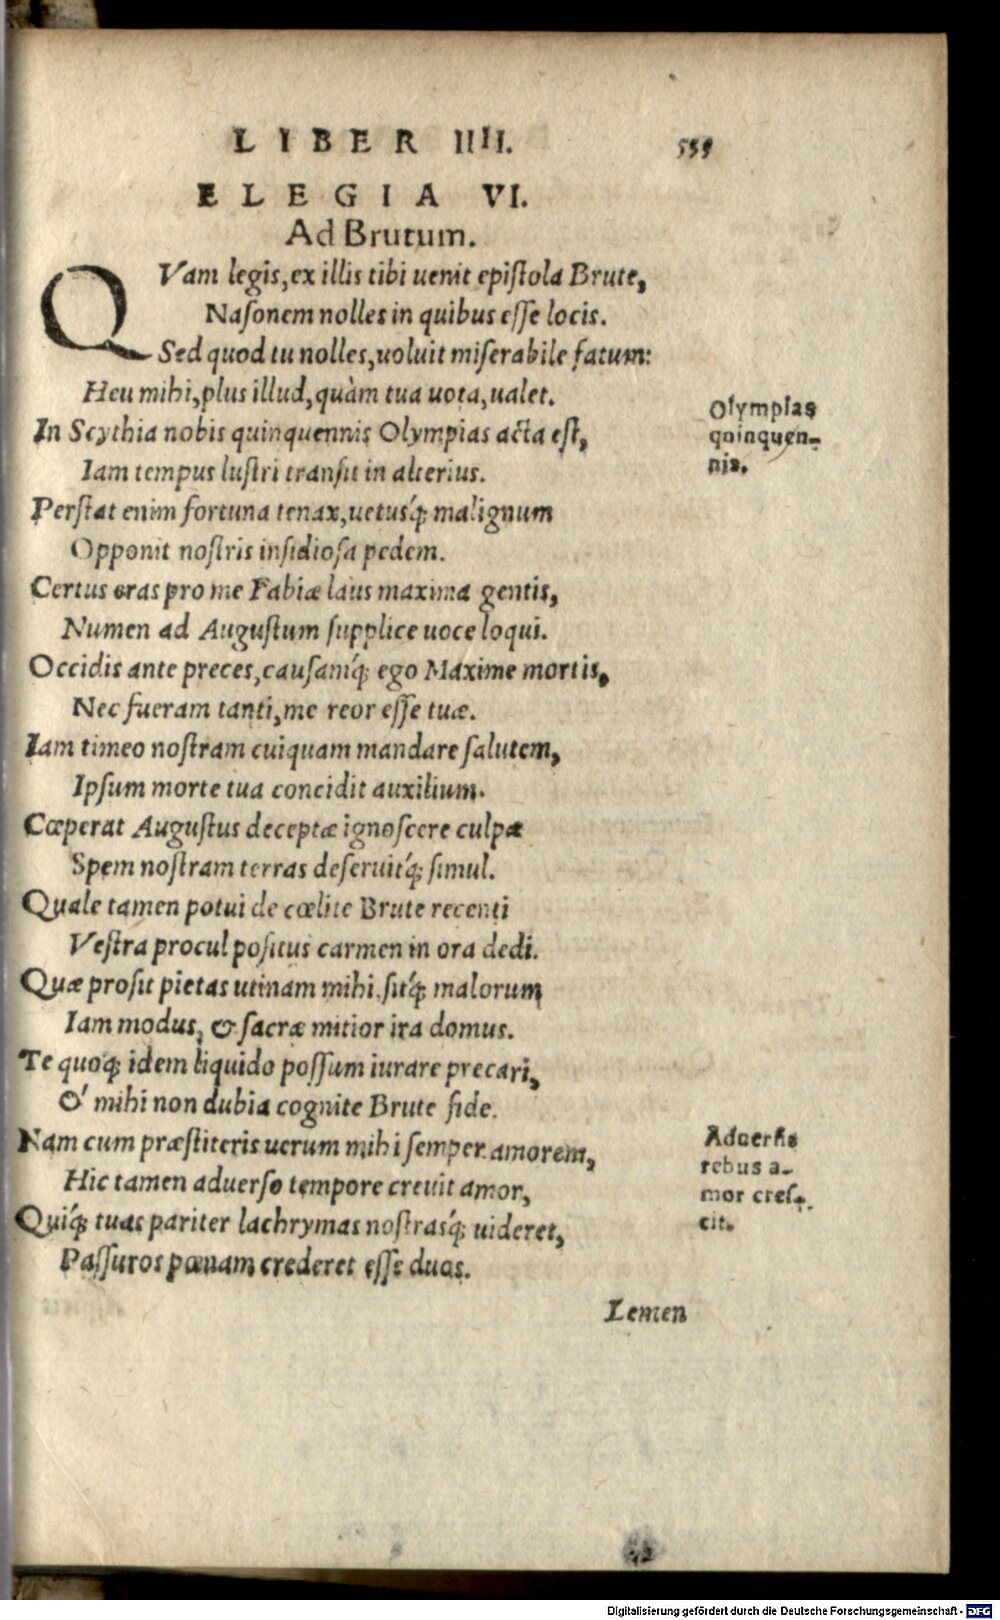 LIBER IIII. 559
ELEGIA VI.
Ad Brutum.
QVam legis, ex illis tibi uenit epistola Brute,
Nasonem nolles in quibus esse locis.
Sed quod tu nolles, uoluit miserabile fatum:
Heu mihi, plus illud, quàm tua uota, ualet.
In Scythia nobis quinquennis Olympias acta est,
Iam tempus lustri transit in alterius.
Perstat enim fortuna tenax, uetusq́; malignum
Opponit nostris insidiosa pedem.
Certus eras pro me Fabiæ laus maxima gentis,
Numen ad Augustum supplice uoce loqui.
Occidis ante preces, causamq́; ego Maxime mortis,
Nec fueram tanti, me reor esse tuæ.
Iam timeo nostram cuiquam mandare salutem,
Ipsum morte tua concidit auxilium.
Cœperat Augustus deceptæ ignoscere culpæ
Spem nostram terras deseruitq́; simul.
Quale tamen potui de cœlite Brute recenti
Vestra procul positus carmen in ora dedi.
Quæ prosit pietas utinam mihi, sitq́; malorum
Iam modus, & sacræ mitior ira domus.
Te quoq; idem liquido possum iurare precari,
O' mihi non dubia cognite Brute fide.
Nam cum præstiteris uerum mihi semper amorem,
Hic tamen aduerso tempore creuit amor,
Quiq́; tuas pariter lachrymas nostrasq́; uideret,
Passuros pœnam crederet esse duos.
Lemen
Olympias
quinquen-
nis.
Aduersis
rebus a-
mor cres-
cit.
Digitalisierung gefördert durch die Deutsche Forschungsgemeinschaft - DFG